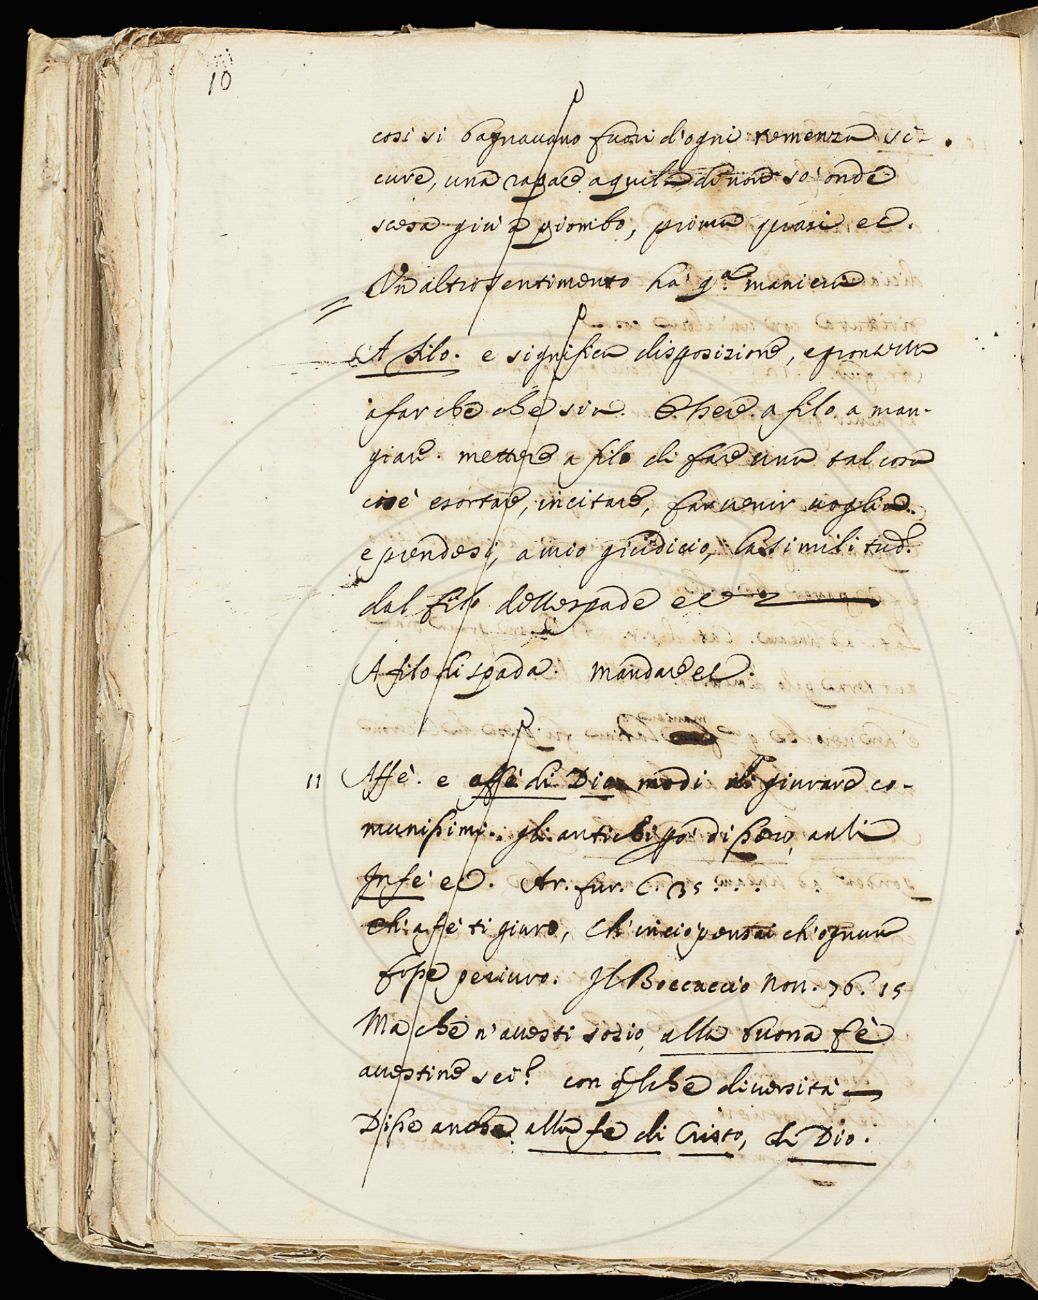 10
così si bagnauano fuori d'ogni temenza si-
cure, una rapace aquila di non so onde
scesa giù a piombo, prima quasi ec.
Un altro sentimento ha q.a maniera
A filo. e significa disposizione, e prontezza
a far che che sia. Essere a filo a man-
giare. mettere a filo di fare una tal cosa
cioè esortare, incitare, far uenir uoglia.
e prendesi, a mio giudicio, la similitud.e
dal filo delle spade ec
A filo di spada. Mandare ec.
11 Affè. e affè di Dio modi di giurare co-
munissimi. gli antichi dissero, alla
In fè ec. Ar. fur. C. 35...
Ch'a fè ti giuro, ch'io pensai ch'ognun
fosse periuro. Il Boccaccio Nou. 76. 15
Ma che n'auesti sozio, alla buona fè
auestine sei? con qlche diuersità
Disse anche alla fe di Cristo, di Dio.